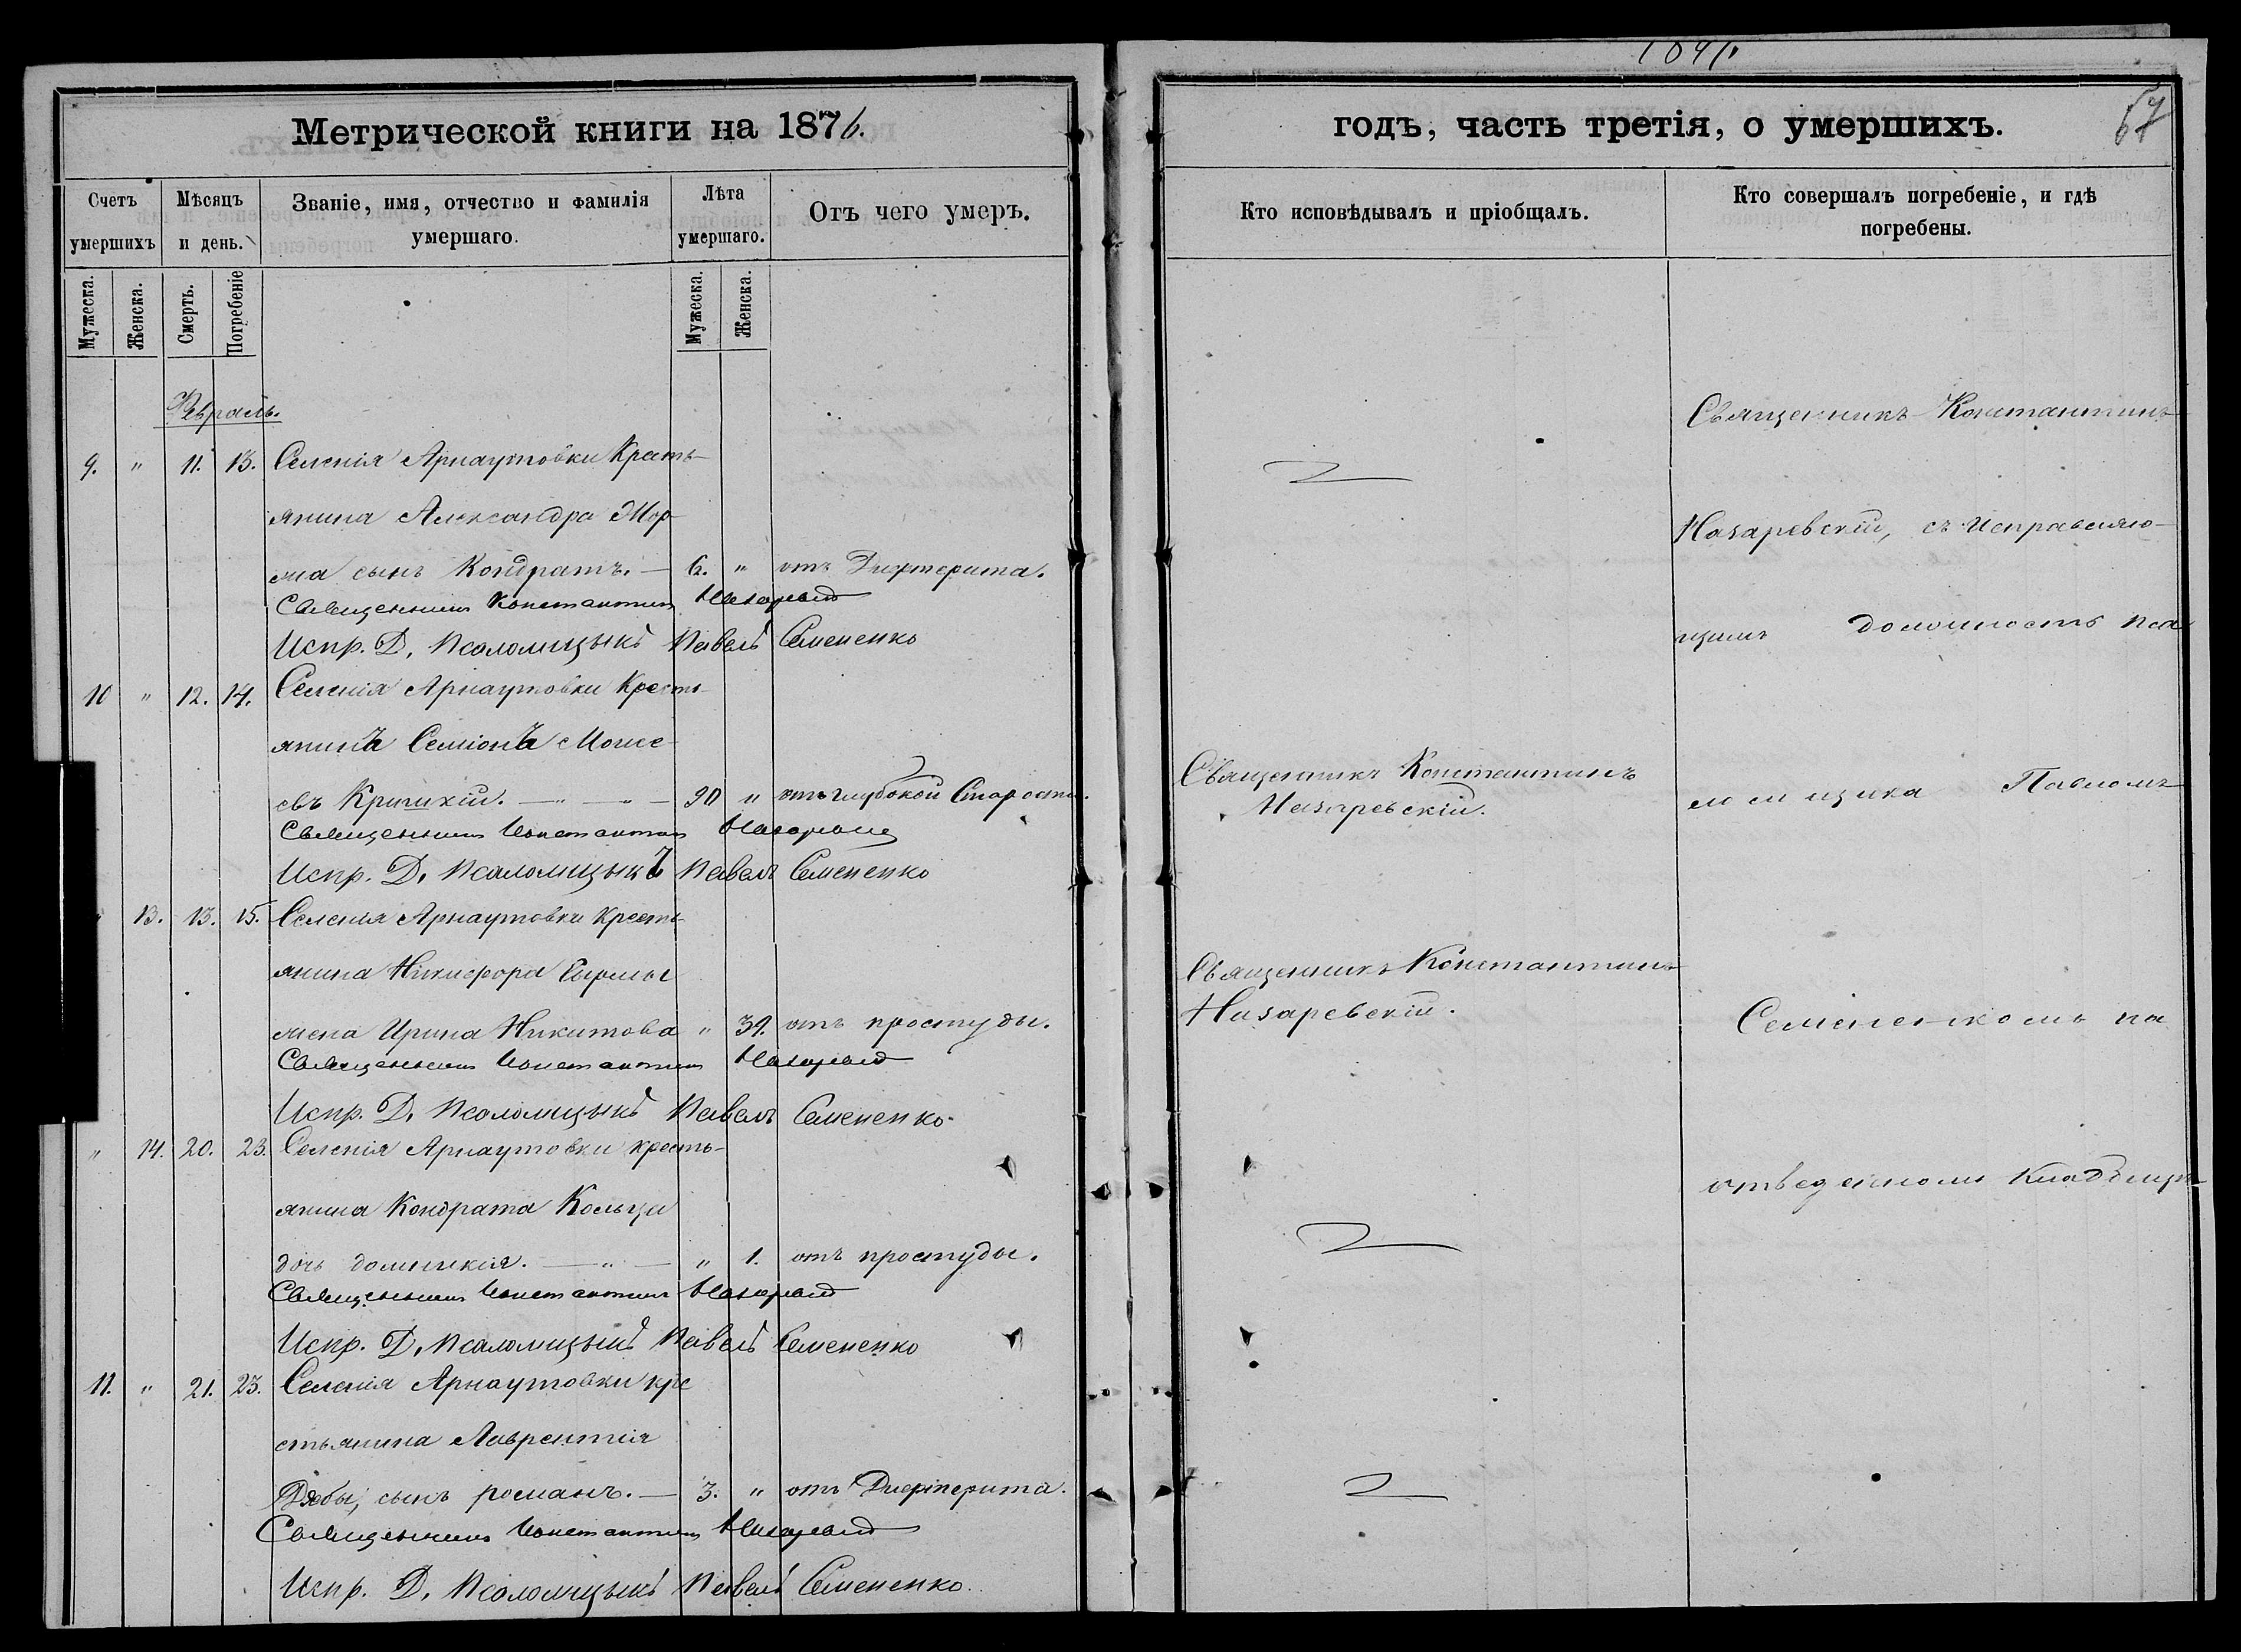 Метрической книги на 1876.
Счетъ умершихъ
Мѣсяцъ и день.
Званіе, имя, отчество и фамилія умершаго.
Лѣта умершаго.
Отъ чего умеръ.
Мужеска.
Женска.
Смерть.
Погребеніе
Мужеска.
Женска.
Февраль.
9. " 11. 13. Селенія Арнаутовки Кресть-
янина Александра
сынъ Кондратъ. — 6. " отъ Дифтерита.
Священникъ Константинъ
Испр. Д. Псаломщыкъ Павелъ Семененко
10 " 12. 14. Селенія Арнаутовки Кресть-
янинъ Семіонъ Моисе-
евъ — " — " — 90 " отъ глубокой Старости.
Священникъ Константинъ
Испр. Д. Псаломщыкъ Павелъ Семененко
13. 13. 15. Селенія Арнаутовки Кресть-
янина Никифора
жена Ирина Никитова " 39. отъ простуды.
Священникъ Константинъ
Испр. Д. Псаломщыкъ Павелъ Семененко
" 14. 20. 23. Селенія Арнаутовки кресть-
янина Кондрата Кольца
дочь домникія. — " — " 1. отъ простуды.
Священникъ Константинъ
Испр. Д. Псаломщыкъ Павелъ Семененко
11. " 21. 23. Селенія Арнаутовки кре
стьянина Лаврентія
сынъ романъ. — 3. " отъ Дифтерита.
Священникъ Константинъ
Испр. Д. Псаломщыкъ Павелъ Семененко
67
годъ, часть третія, о умершихъ.
Кто исповѣдывалъ и пріобщалъ.
Кто совершалъ погребеніе, и гдѣ погребены.
Священникъ Константинъ
Назаревскій.
Священникъ Константинъ
Назаревскій.
Священникъ Константинъ
Назаревскій, съ Исправляю-
щимъ должность пса
ломщика Павломъ
Семененкомъ на
отведенномъ